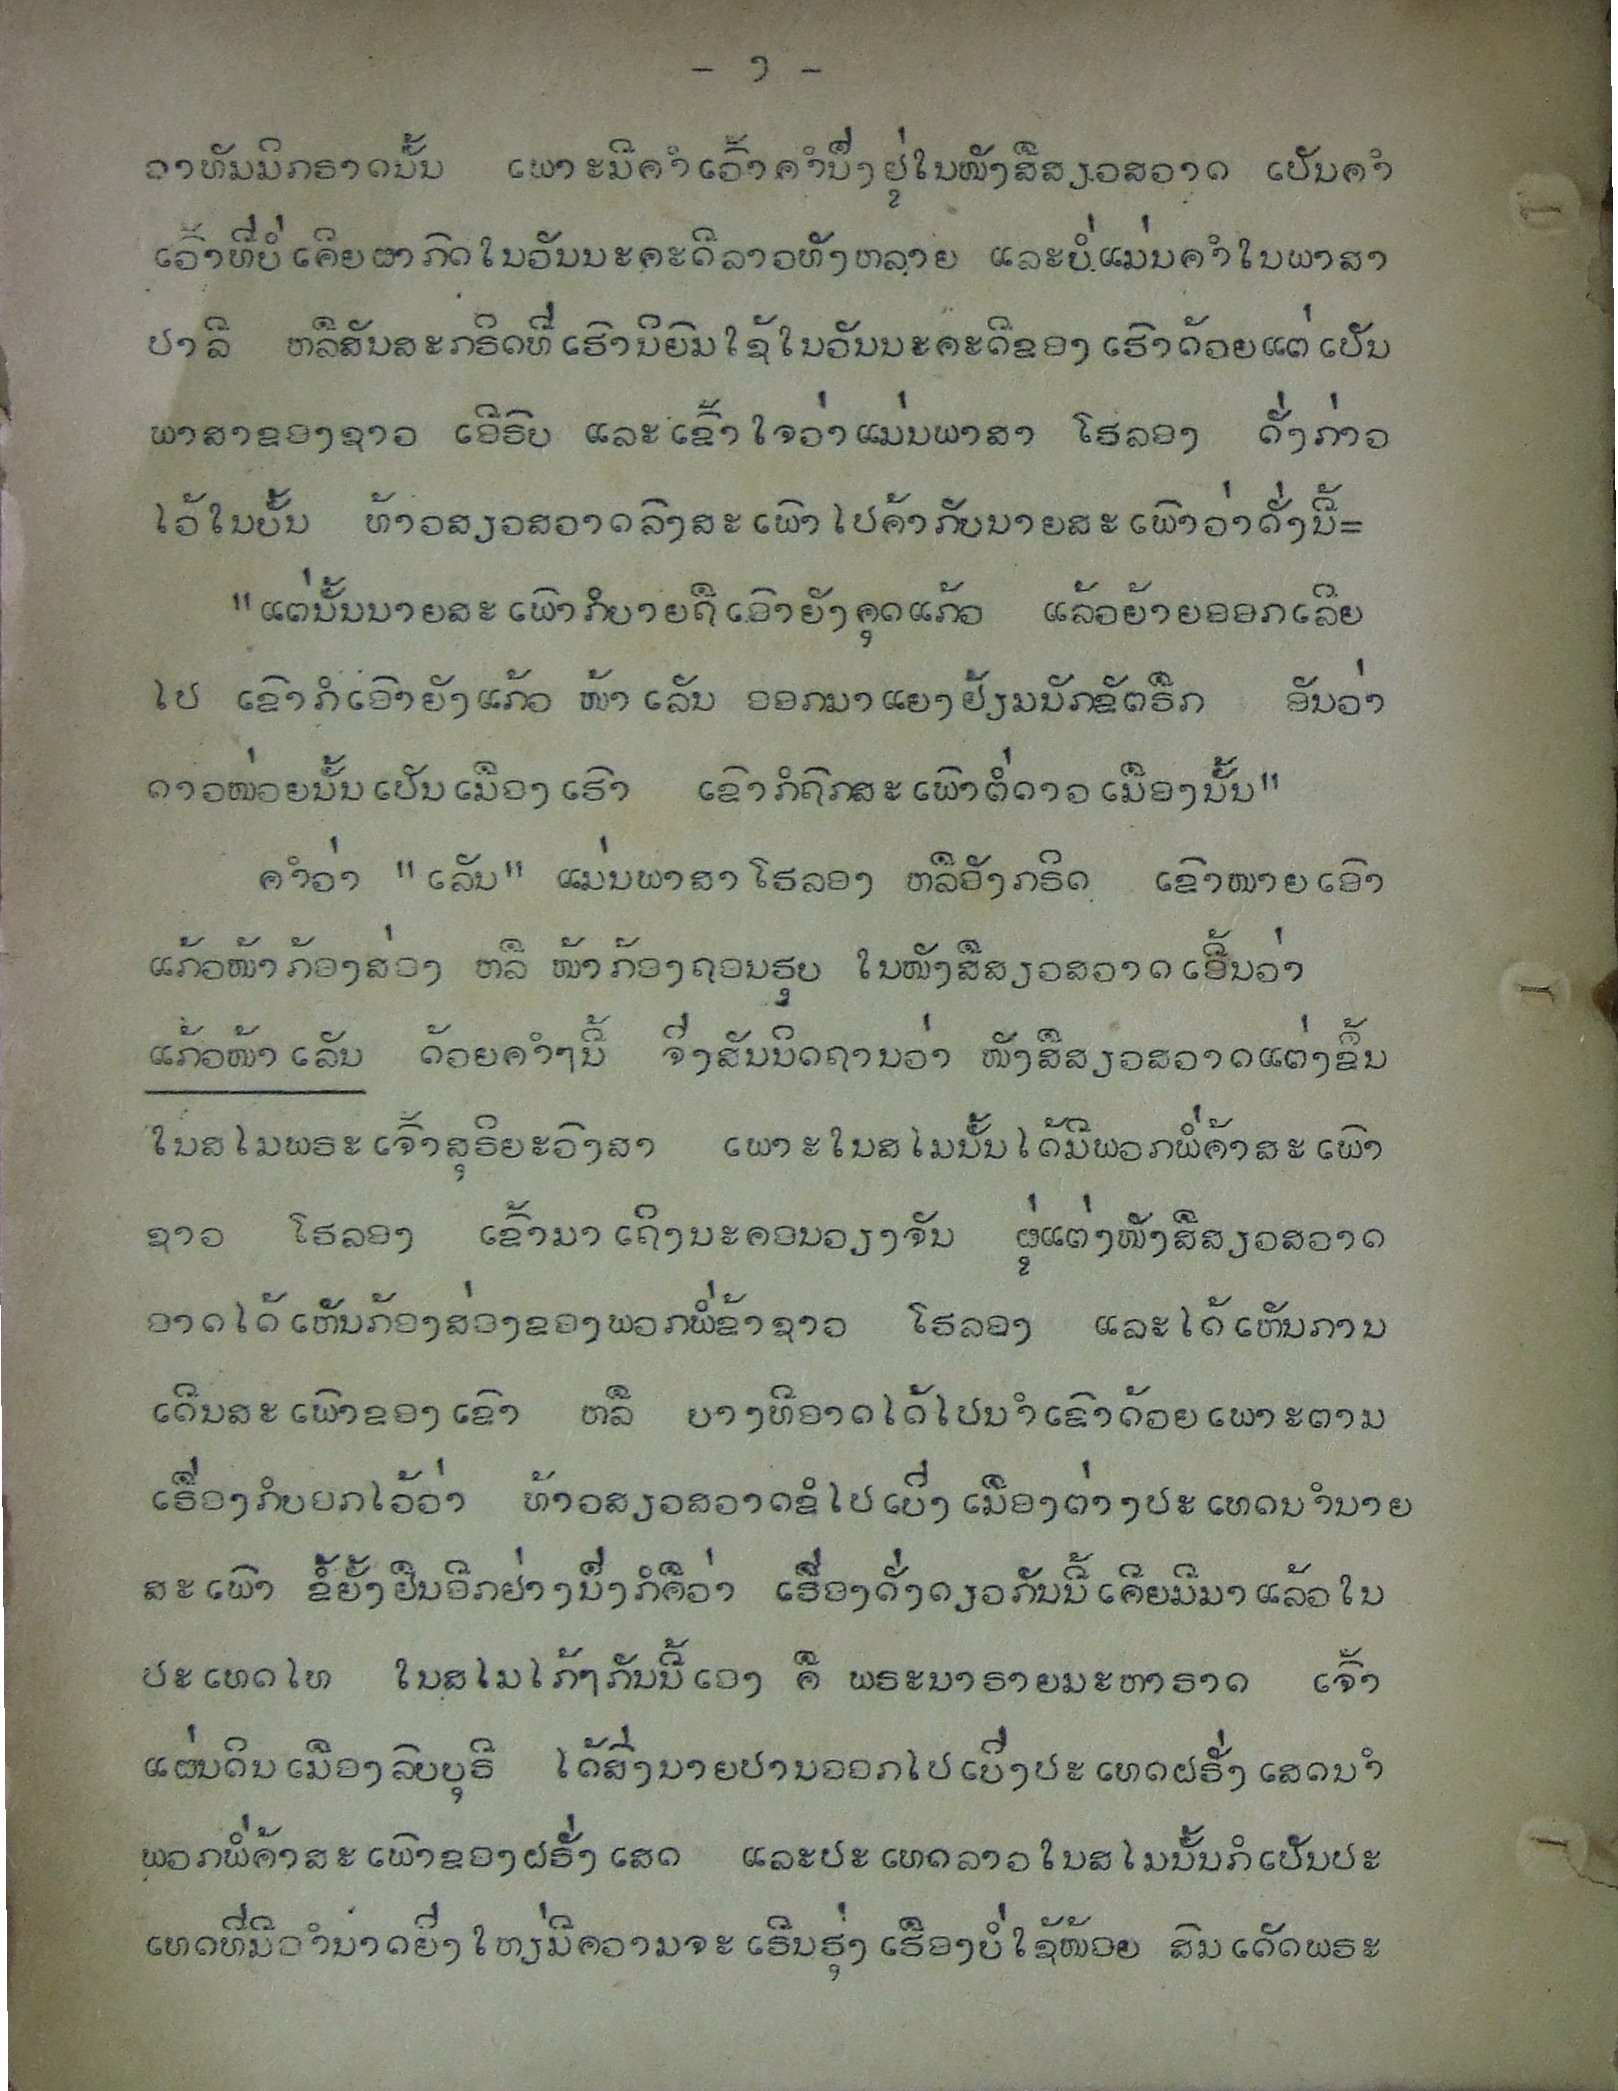 - ງ -
ວາທັມມິກຣາດນັ້ນ ເພາະມີຄຳເວົ້າຄຳນຶ່ງຢູ່ໃນໜັງສືສຽວສວາດ ເປັນຄຳ
ເວົ້າທີ່ບໍ່ເຄີຍຜາກົດໃນວັນນະຄະດີລາວທັງຫລາຍ ແລະບໍ່ແມ່ນຄຳໃນພາສາ
ປາລີ ຫລືສັນສະກຣິດທີ່ເຮົານິຍົມໃຊ້ໃນວັນນະຄະດີຂອງເຮົາດ້ວຍແຕ່ເປັນ
ພາສາຂອງຊາວ ເອີຣົບ ແລະເຂົ້າໃຈວ່າແມ່ນພາສາ ໂຮລອງ ດັ່ງກ່າວ
ໄວ້ໃນບັ້ນ ທ້າວສຽວສວາດລົງສະເພົາໄປຄ້າກັບນາຍສະເພົາວ່າດັ່ງນີ້=
"ແຕ່ນັ້ນນາຍສະເພົາກໍບາຍຖືເອົາຍັງຄຸດແກ້ວ ແລ້ວຍ້າຍອອກເລີຍ
ໄປ ເຂົາກໍເອົາຍັງແກ້ວ ໜ້າເລັນ ອອກມາແຍງຢ້ຽມນັກຂັດຣຶກ ອັນວ່າ
ດາວໜ່ວຍນັ້ນເປັນເມືອງເຮົາ ເຂົາກໍຖົກສະເພົາຕໍ່ດາວເມືອງນັ້ນ"
ຄຳວ່າ "ເລັນ" ແມ່ນພາສາໂຮລອງ ຫລືອັງກຣິດ ເຂົາໝາຍເອົາ
ແກ້ວໜ້າກ້ອງສ່ອງ ຫລື ໜ້າກ້ອງຖອນຮູບ ໃນໜັງສືສຽວສວາດເອີ້ນວ່າ
ແກ້ວໜ້າເລັນ ດ້ວຍຄຳໆນີ້ ຈຶ່ງສັນນິດຖານວ່າ ໜັງສືສຽວສວາດແຕ່ງຂຶ້ນ
ໃນສໄມພຣະເຈົ້າສຸຣິຍະວົງສາ ເພາະໃນສໄມນັ້ນໄດ້ມີພວກພໍ່ຄ້າສະເພົາ
ຊາວ ໂຮລອງ ເຂົ້າມາເຖິງນະຄອນວຽງຈັນ ຜູ່ແຕ່ງໜັງສືສຽວສວາດ
ອາດໄດ້ເຫັນກ້ອງສ່ອງຂອງພວກພໍ່ຂ້າຊາວ ໂຮລອງ ແລະໄດ້ເຫັນການ
ເດີນສະເພົາຂອງເຂົາ ຫລື ບາງທີອາດໄດ້ໄປນຳເຂົາດ້ວຍເພາະຕາມ
ເຣື່ອງກໍບອກໄວ້ວ່າ ທ້າວສຽວສວາດຂໍໄປເບິ່ງເມືອງຕ່າງປະເທດນຳນາຍ
ສະເພົາ ຂໍ້ຍັ້ງຢືນອີກຢ່າງນຶ່ງກໍຄືວ່າ ເຣື່ອງດັ່ງດຽວກັນນີ້ເຄີຍມີມາແລ້ວໃນ
ປະເທດໄທ ໃນສໄມໄກ້ໆກັນນີ້ເອງ ຄື ພຣະນາຣາຍມະຫາຣາດ ເຈົ້າ
ແຜ່ນດິນເມືອງລົບບຸຣີ ໄດ້ສົ່ງນາຍປານອອກໄປເບິ່ງປະເທດຝຣັ່ງເສດນຳ
ພວກພໍ່ຄ້າສະເພົາຂອງຝຣັ່ງເສດ ແລະປະເທດລາວໃນສໄມນັ້ນກໍເປັນປະ
ເທດທີ່ມີອຳນາດຍິ່ງໃຫຽ່ມີຄວາມຈະເຣີນຮຸ່ງເຮືອງບໍ່ໃຊ້ໜ້ອຍ ສົມເດັດພຣະ